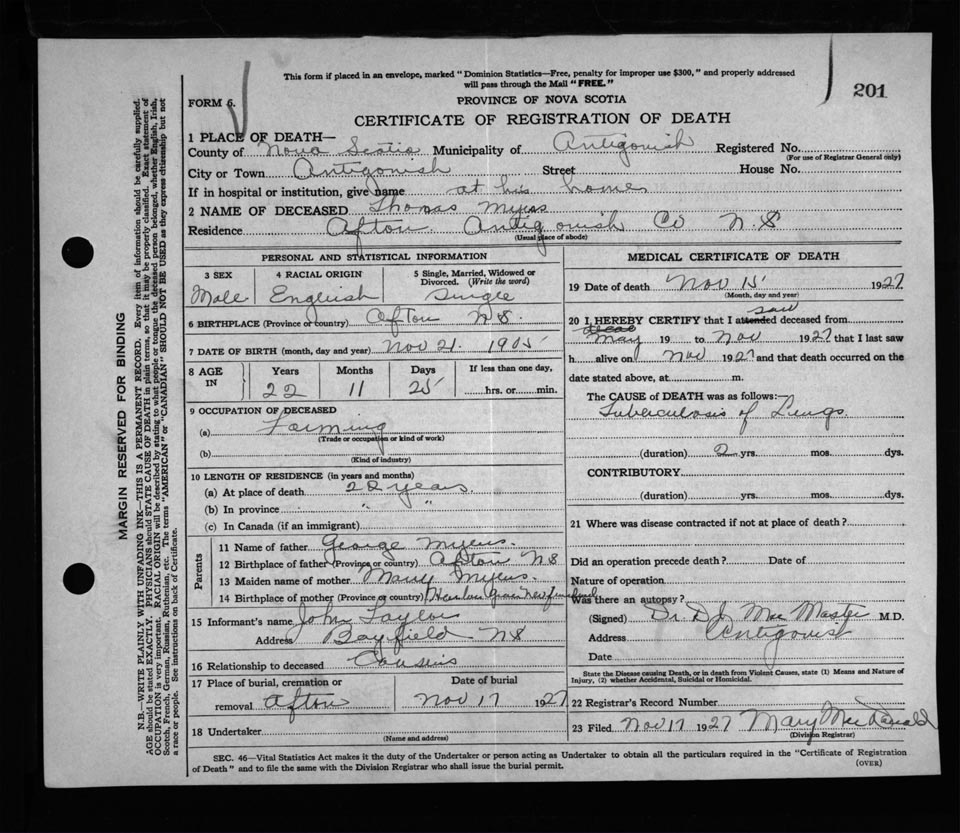 This form if placed in an envelope, marked "Dominion Statistics—Free, penalty for improper use $300," and properly addressed
will pass through the Mail "FREE."
201
FORM 6.
PROVINCE OF NOVA SCOTIA
CERTIFICATE OF REGISTRATION OF DEATH
1 PLACE OF DEATH—
County of Nova Scotia Municipality of Antigonish Registered No.
(For use of Registrar General only)
City or Town Antigonish Street House No.
If in hospital or institution, give name at his home
2 NAME OF DECEASED Thomas Myers
Residence Afton Antigonish Co N.S
(Usual place of abode)
PERSONAL AND STATISTICAL INFORMATION
3 SEX 4 RACIAL ORIGIN 5 Single, Married, Widowed or Divorced. (Write the word)
Male English Single
6 BIRTHPLACE (Province or country) Afton N.S.
7 DATE OF BIRTH (month, day and year) Nov 21. 1905
8 AGE IN Years Months Days If less than one day,
22 11 25 hrs. or min.
9 OCCUPATION OF DECEASED
(a) Farming
(Trade or occupation or kind of work)
(b)
(Kind of industry)
10 LENGTH OF RESIDENCE (in years and months)
(a) At place of death 22 years.
(b) In province " "
(c) In Canada (if an immigrant)
Parents
11 Name of father George Myers.
12 Birthplace of father (Province or country) Afton N.S
13 Maiden name of mother Mary Myers.
14 Birthplace of mother (Province or country)
15 Informant's name John Taylor
Address Bayfield N.S
16 Relationship to deceased Cousins
17 Place of burial, cremation or removal Afton Date of burial Nov 17 1927
18 Undertaker
(Name and address)
MEDICAL CERTIFICATE OF DEATH
19 Date of death Nov 15 1927
(Month, day and year)
saw
20 I HEREBY CERTIFY that I attended deceased from
May 19 to Nov 1927 that I last saw
h alive on Nov 1927 and that death occurred on the
date stated above, at m.
The CAUSE of DEATH was as follows:—
Tuberculosis of Lungs
(duration) 2 yrs. mos. dys.
CONTRIBUTORY
(duration) yrs. mos. dys.
21 Where was disease contracted if not at place of death?
Did an operation precede death? Date of
Nature of operation
Was there an autopsy?
(Signed) Dr. D.J. MacMaster M.D.
Address Antigonish
Date
State the Disease causing Death, or in death from Violent Causes, state (1) Means and Nature of
Injury, (2) whether Accidental, Suicidal or Homicidal.
22 Registrar's Record Number
23 Filed Nov 17 1927 Mary MacDonald
(Division Registrar)
SEC. 46—Vital Statistics Act makes it the duty of the Undertaker or person acting as Undertaker to obtain all the particulars required in the "Certificate of Registration
of Death" and to file the same with the Division Registrar who shall issue the burial permit.
(OVER)
MARGIN RESERVED FOR BINDING
N.B.—WRITE PLAINLY WITH UNFADING INK—THIS IS A PERMANENT RECORD. Every item of information should be carefully supplied.
AGE should be stated EXACTLY. PHYSICIANS should STATE CAUSE OF DEATH in plain terms, so that it may be properly classified. Exact statement of
OCCUPATION is very important. RACIAL ORIGIN will be described by stating to what people or tongue the deceased person belonged, whether English, Irish,
Scotch, French, German, Russian, Ruthenian, etc. The terms "AMERICAN" or "CANADIAN" SHOULD NOT BE USED as they express citizenship but not
a race or people. See instructions on back of Certificate.